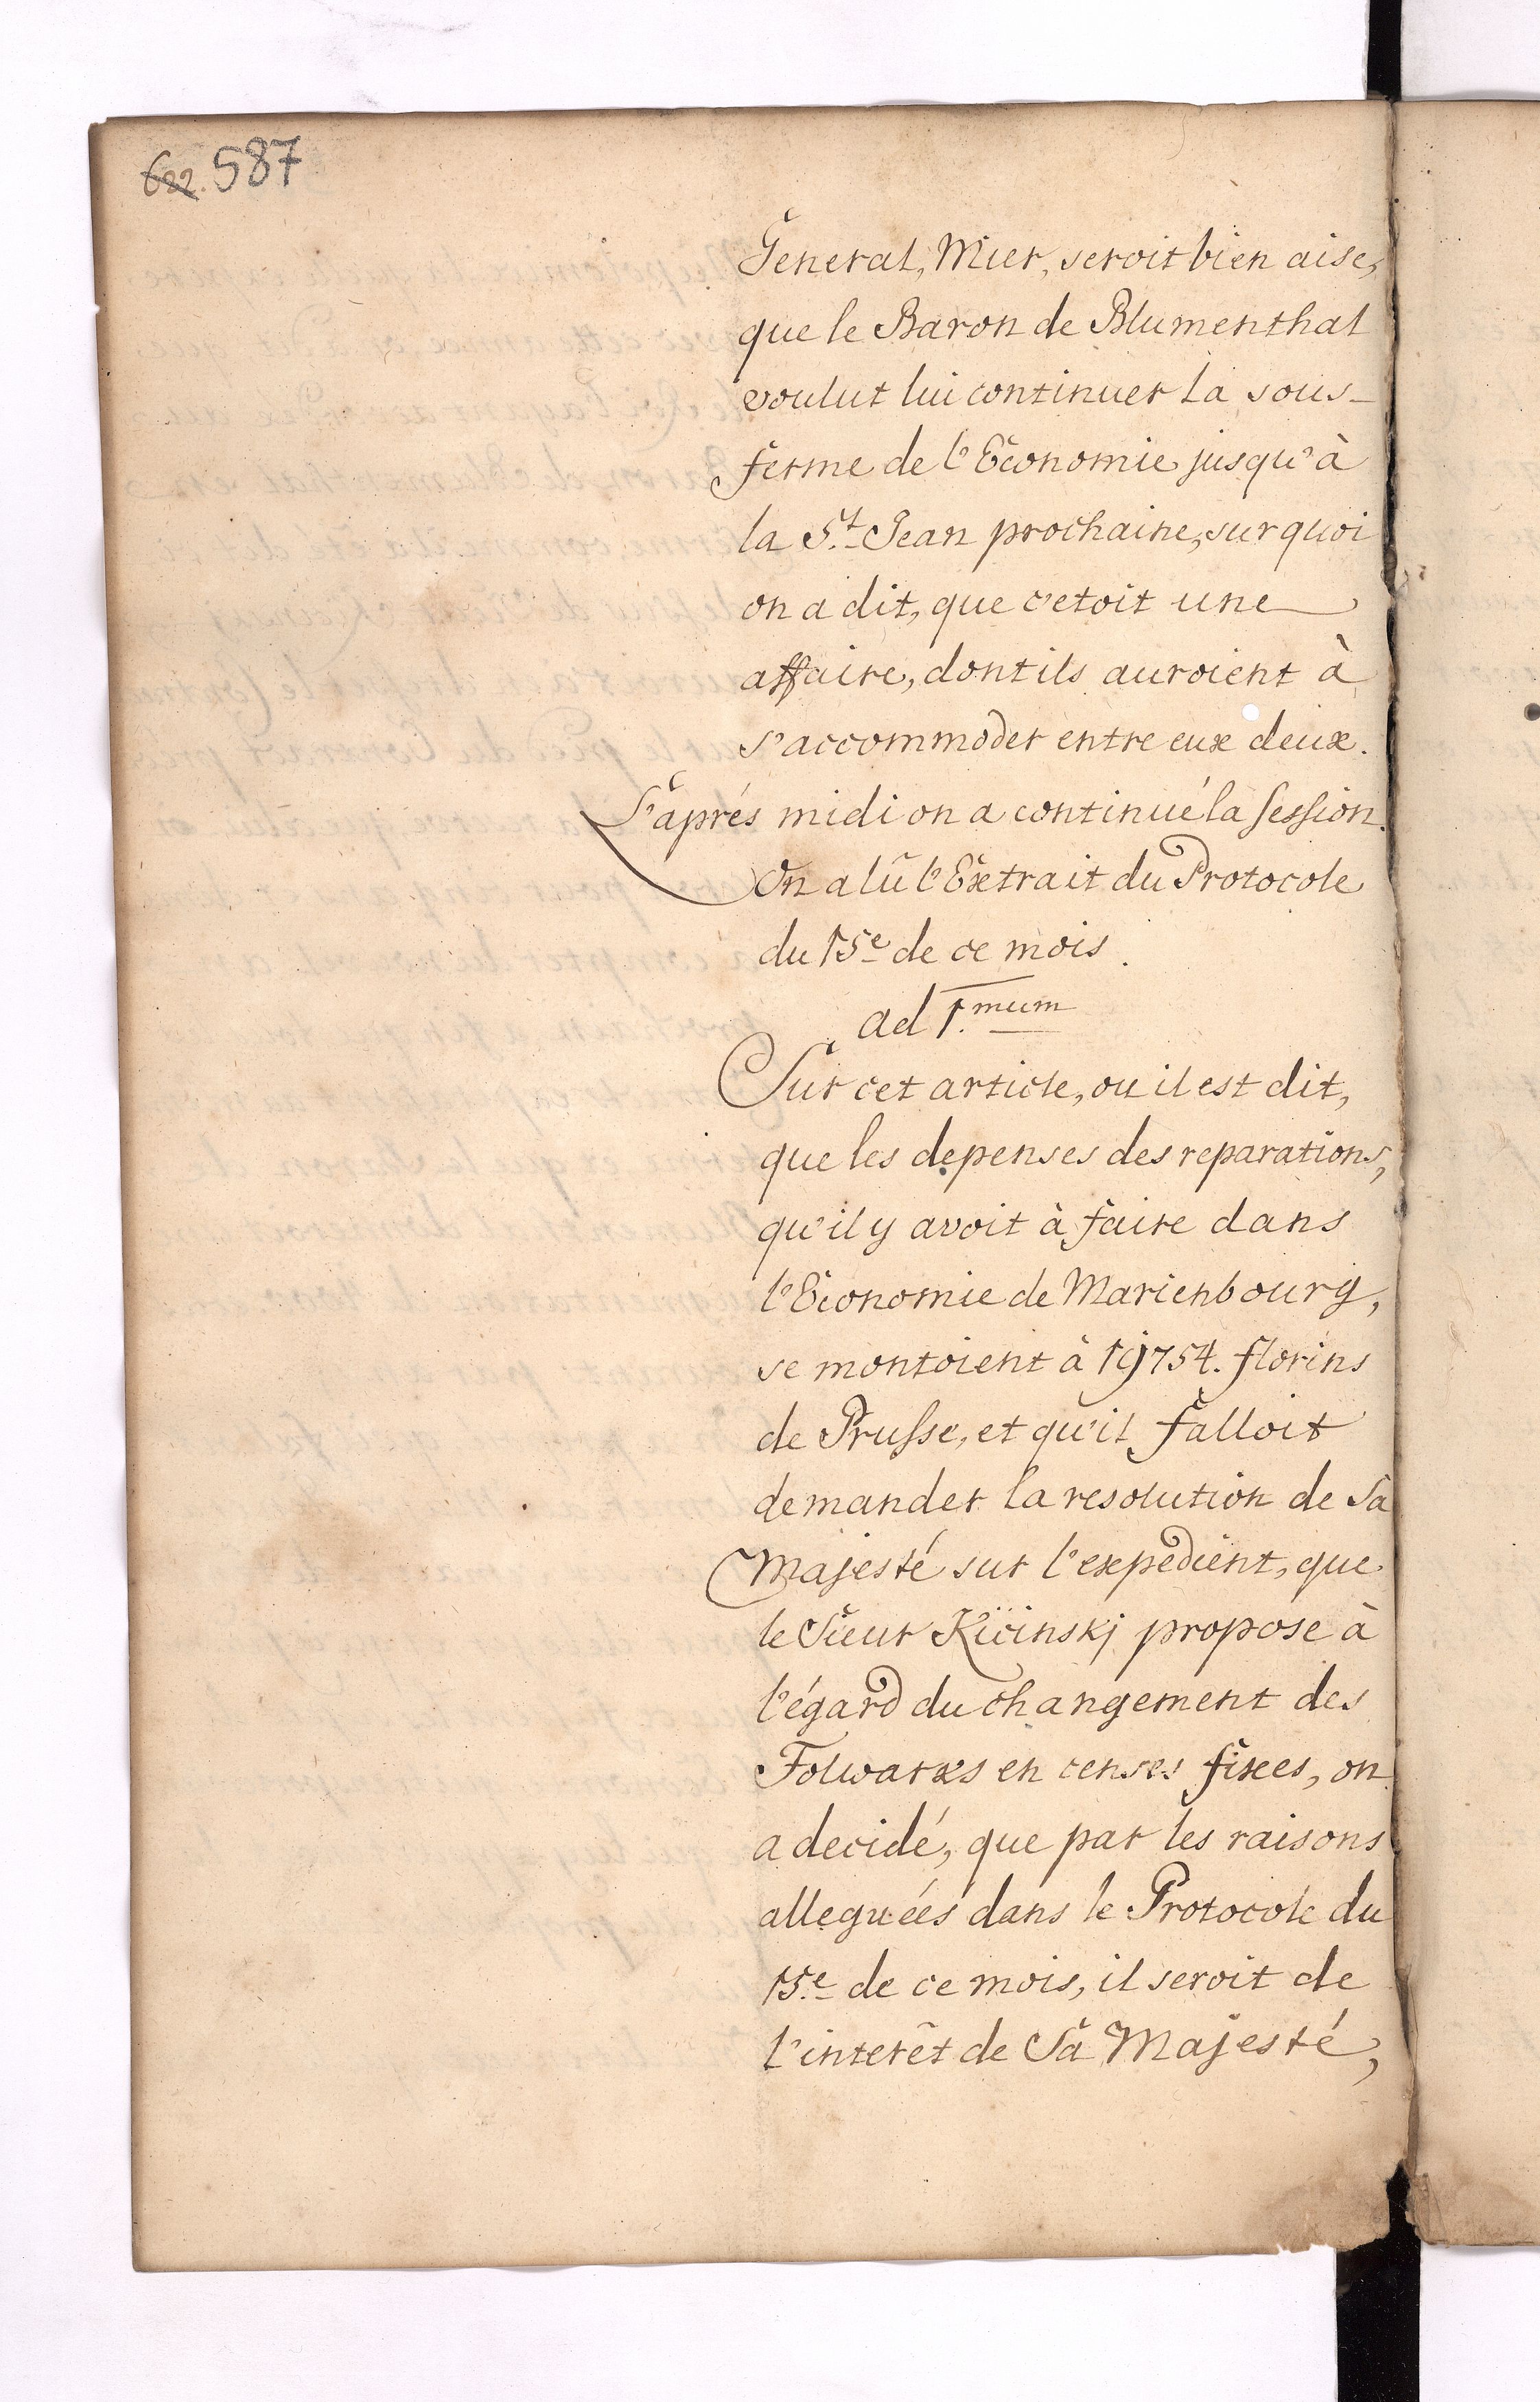 622. 587
General, Mier, seroit bien aise,
que le Baron de Blumenthal
voulut lui continuer la sous-
ferme de l'Economie jusqu'à
la St. Jean prochaine, sur quoi
on a dit, que c'etoit une
affaire, dont ils auroient à
s'accommoder entre eux deux.
L'aprés midi on a continué la session.
On a lû l'Extrait du Protocole
du 15e de ce mois.
ad 1.mum
Sur cet article, ou il est dit,
que les depenses des reparations,
qu'il y avoit à faire dans
l'Economie de Marienbourg,
se montoient à 19754. florins
de Prusse, et qu'il falloit
demander la resolution de Sa
Majesté sur l'expedient, que
le Sieur Kicinskj propose à
l'égard du changement des
Folwarxs en censes fixes, on
a decidé, que par les raisons
alleguées dans le Protocole du
15.e de ce mois, il seroit de
l'interêt de Sa Majesté,